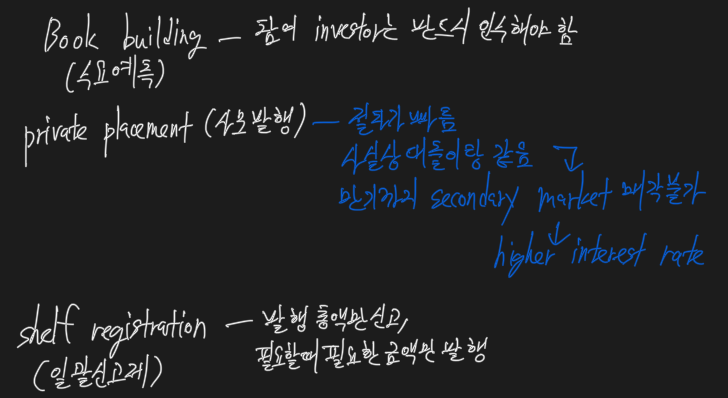 Book building — 참여 investor는 반드시 인수해야 함
(수요예측)
private placement (사모발행) — 절차가 빠름
사실상 대출이랑 같음
만기까지 secondary market 매각불가
↓
higher interest rate
shelf registration — 발행 총액만 신고,
(일괄신고제) 필요할때 필요한 금액만 발행